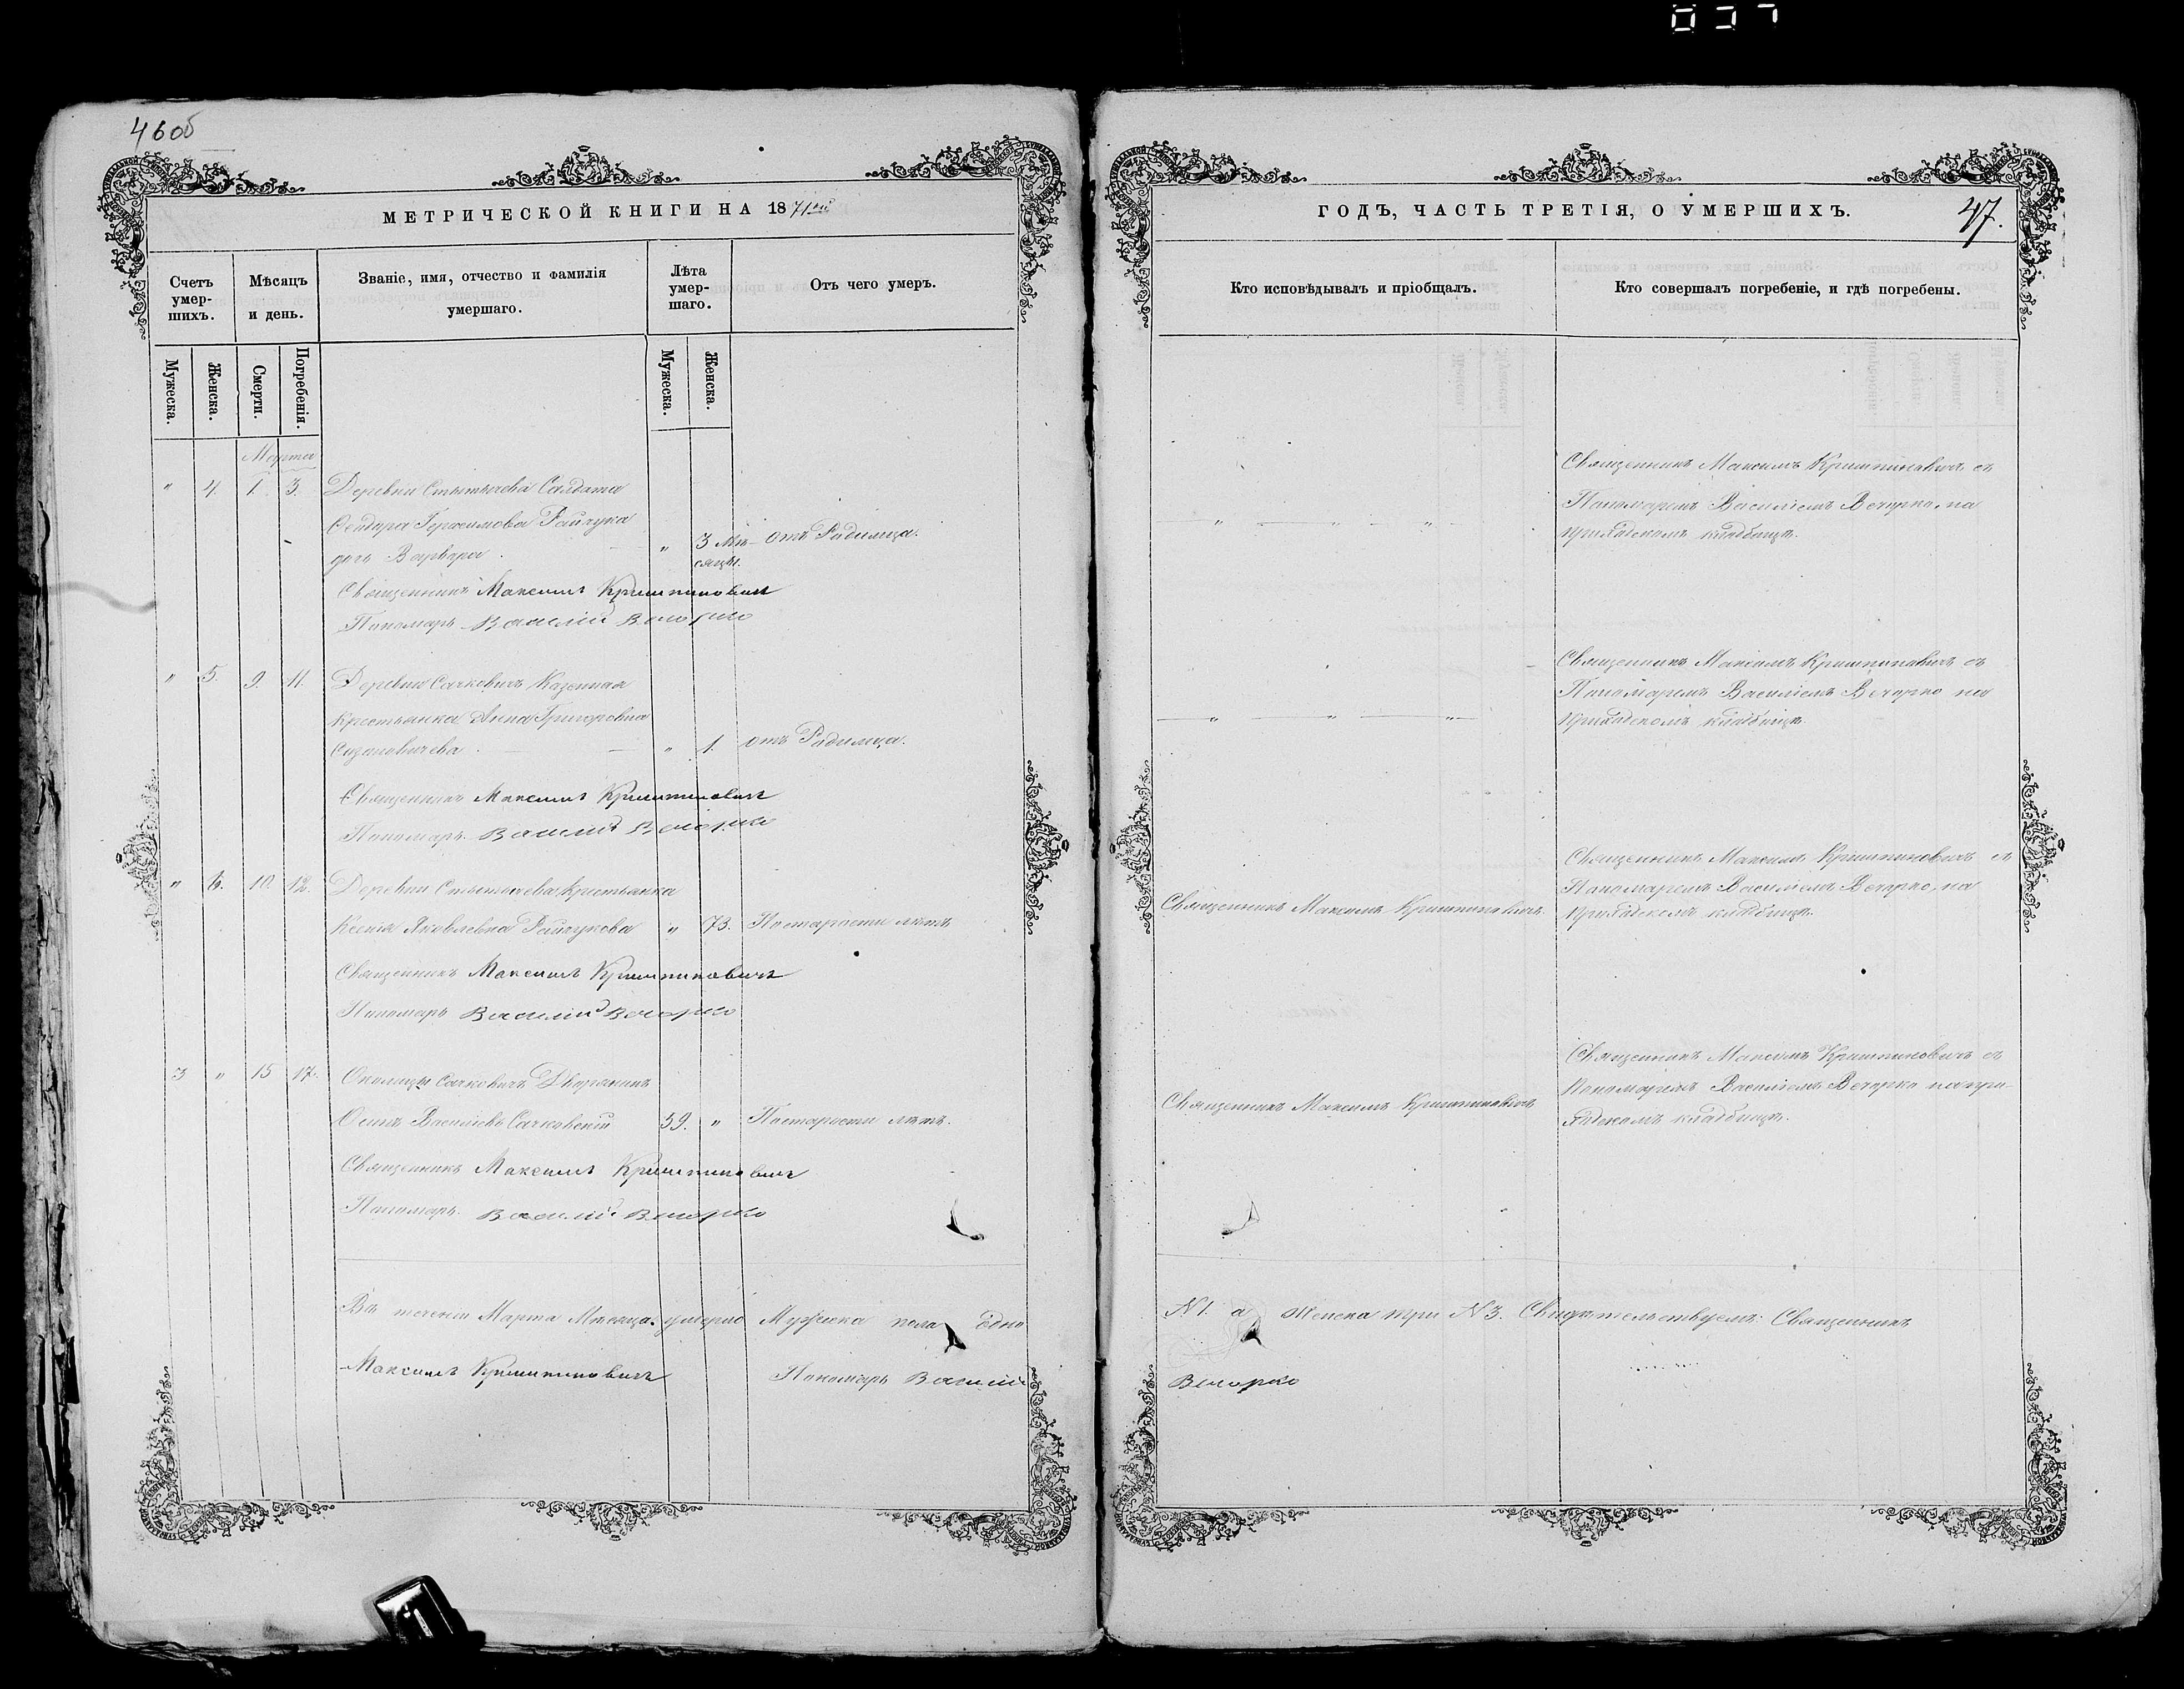 46об
МЕТРИЧЕСКОЙ КНИГИ НА 1871ый
Счетъ умер-шихъ.
Мѣсяцъ и день.
Званіе, имя, отчество и фамилія умершаго.
Лѣта умер-шаго.
Отъ чего умеръ.
Мужеска.
Женска.
Смерти.
Погребенія.
Мужеска.
Женска.
Марта
" 4. 1. 3. Деревни Солдата
Герасимова Райчука
дочь Варвара. " 3 Мѣ- отъ Родимца.
сяцы.
Священникъ Максимъ Криштиновичъ
Пономарь Василій Вечорко
" 5. 9. 11. Деревни Сачковичъ Казенная
крестьянка Анна Григорьевна
" 1. отъ Родимца.
Священникъ Максимъ Криштиновичъ
Пономарь Василій Вечорко
" 6. 10. 12. Деревни крестьянка
Ксенія Яковлевна Райчукова " 73. По старости лѣтъ
Священникъ Максимъ Криштиновичъ
Пономарь Василій Вечорко
3 " 15 17. Околицы Сачковичъ Дворянинъ
Осипъ Васильевъ Сачковскій 59. " По старости лѣтъ.
Священникъ Максимъ Криштиновичъ
Пономарь Василій Вечорко
Въ теченіи Марта Мѣсяца умерло Мужеска пола одно
Максимъ Криштиновичъ Пономарь Василій
ГОДЪ, ЧАСТЬ ТРЕТІЯ, О УМЕРШИХЪ.
47.
Кто исповѣдывалъ и пріобщалъ.
Кто совершалъ погребеніе, и гдѣ погребены.
Священникъ Максимъ Криштиновичъ съ
Пономаремъ Василіемъ Вечорко, на
приходскомъ кладбищѣ.
Священникъ Максимъ Криштиновичъ съ
Пономаремъ Василіемъ Вечорко на
приходскомъ кладбищѣ.
Священникъ Максимъ Криштиновичъ.
Священникъ Максимъ Криштиновичъ съ
Пономаремъ Василіемъ Вечорко, на
приходскомъ кладбищѣ.
Священникъ Максимъ Криштиновичъ
Священникъ Максимъ Криштиновичъ съ
Пономаремъ Василіемъ Вечорко на при-
ходскомъ кладбищѣ.
N1. а Женска три N3. Свидѣтельствуемъ: Священникъ
Вечорко